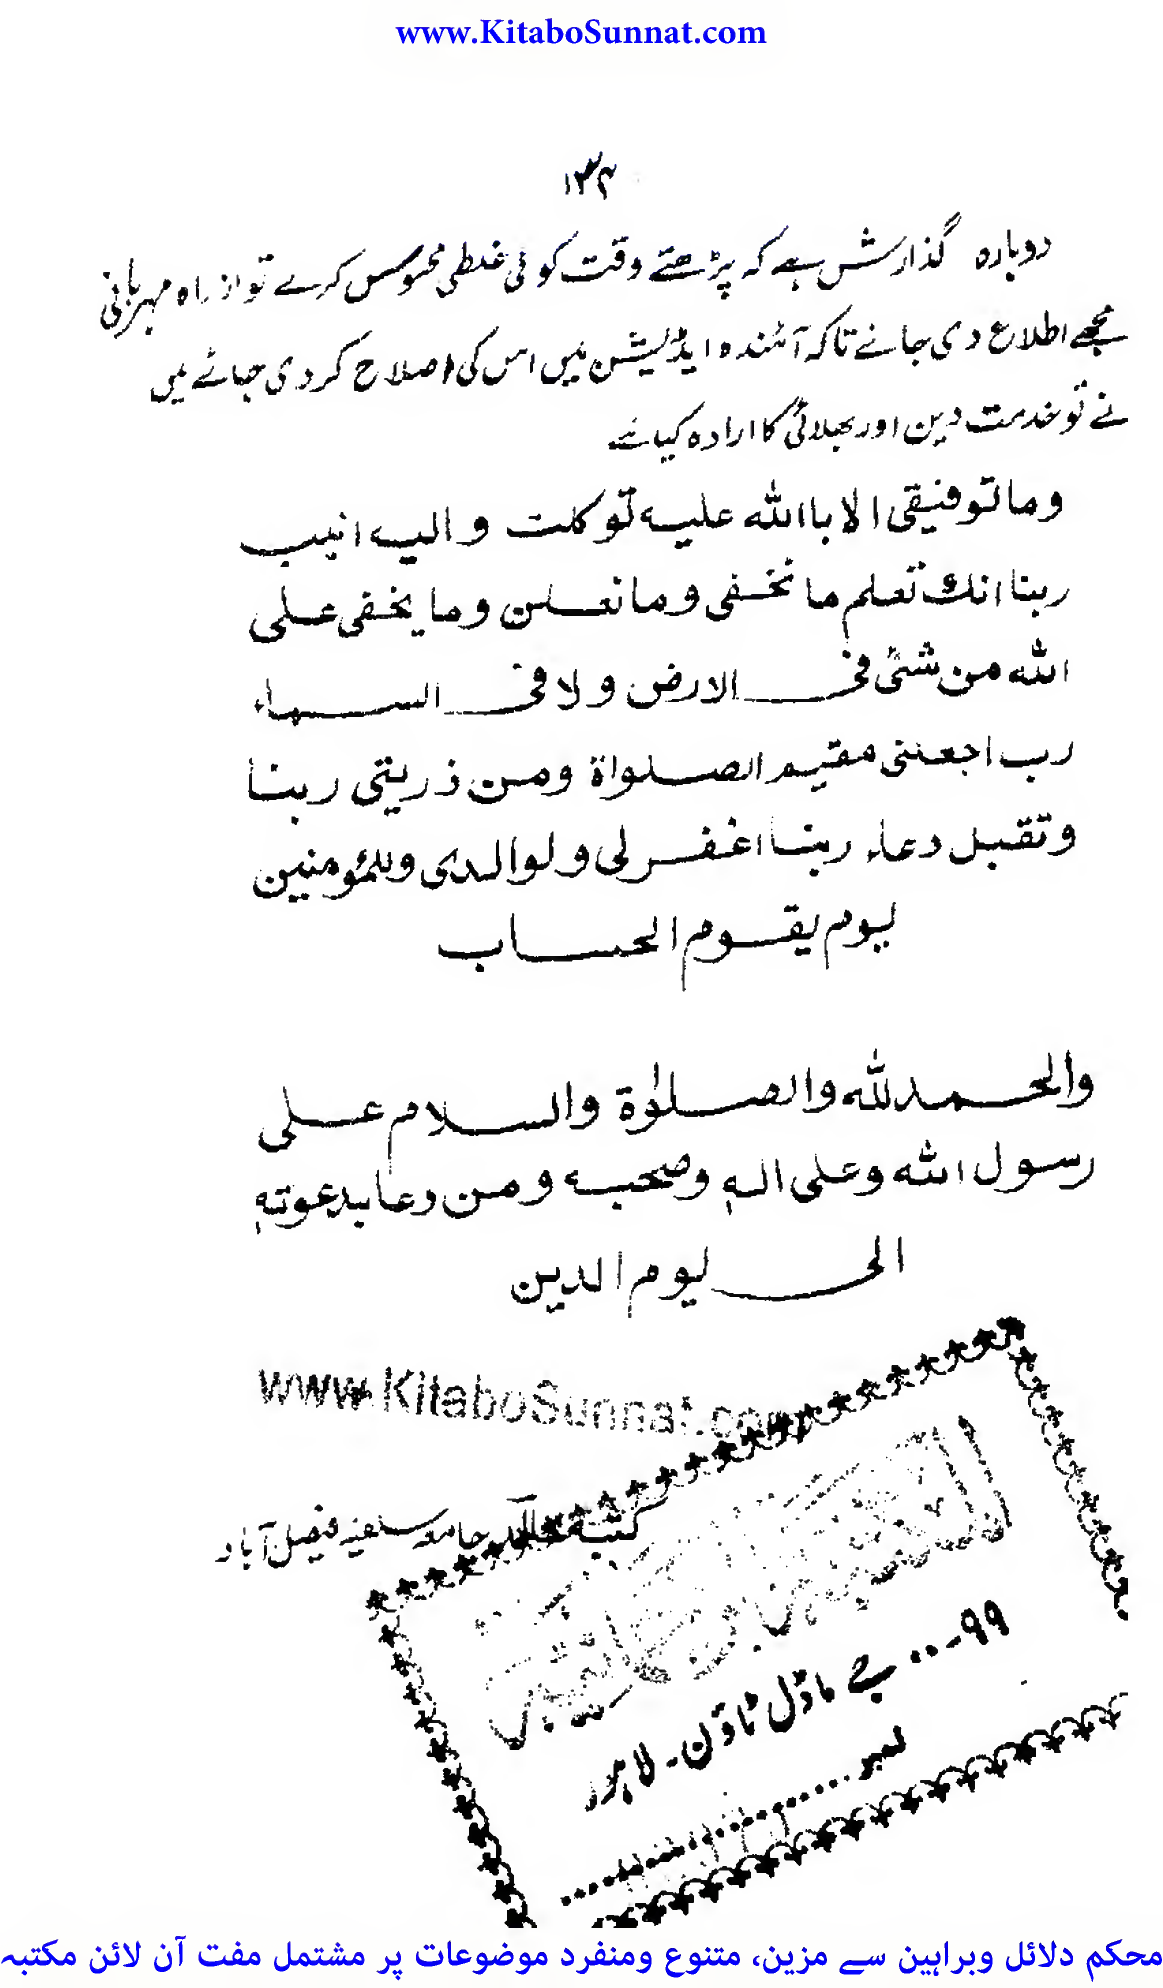 www.KitaboSunnat.com
۱۳۴
دوبارہ گذارش ہے کہ پڑھتے وقت کوئی غلطی محسوس کرے تو از راہ مہربانی
مجھے اطلاع دی جائے تاکہ آئندہ ایڈیشن میں اس کی اصلاح کر دی جائے میں
نے تو خدمت دین اور بھلائی کا ارادہ کیا ہے
وما توفیقی الا باالله علیه توکلت والیه انیب
ربنا انك تعلم ما نخفی وما نعلن وما یخفی علی
الله من شئی فی الارض ولا فی السماء
رب اجعلنی مقیم الصلواة ومن ذریتی ربنا
وتقبل دعاء ربنا اغفرلی ولوالدی وللمؤمنین
لیوم یقوم الحساب
والحمدلله والصلوٰة والسلام علی
رسول الله وعلی اله وصحبه ومن دعا بدعوته
الی یوم الدین
www.KitaboSunnat.com
جامعہ سلفیہ فیصل آباد
۹۹-۰۰ جے ماڈل ٹاؤن - لاہور
نمبر
محکم دلائل وبراہین سے مزین، متنوع ومنفرد موضوعات پر مشتمل مفت آن لائن مکتبہ